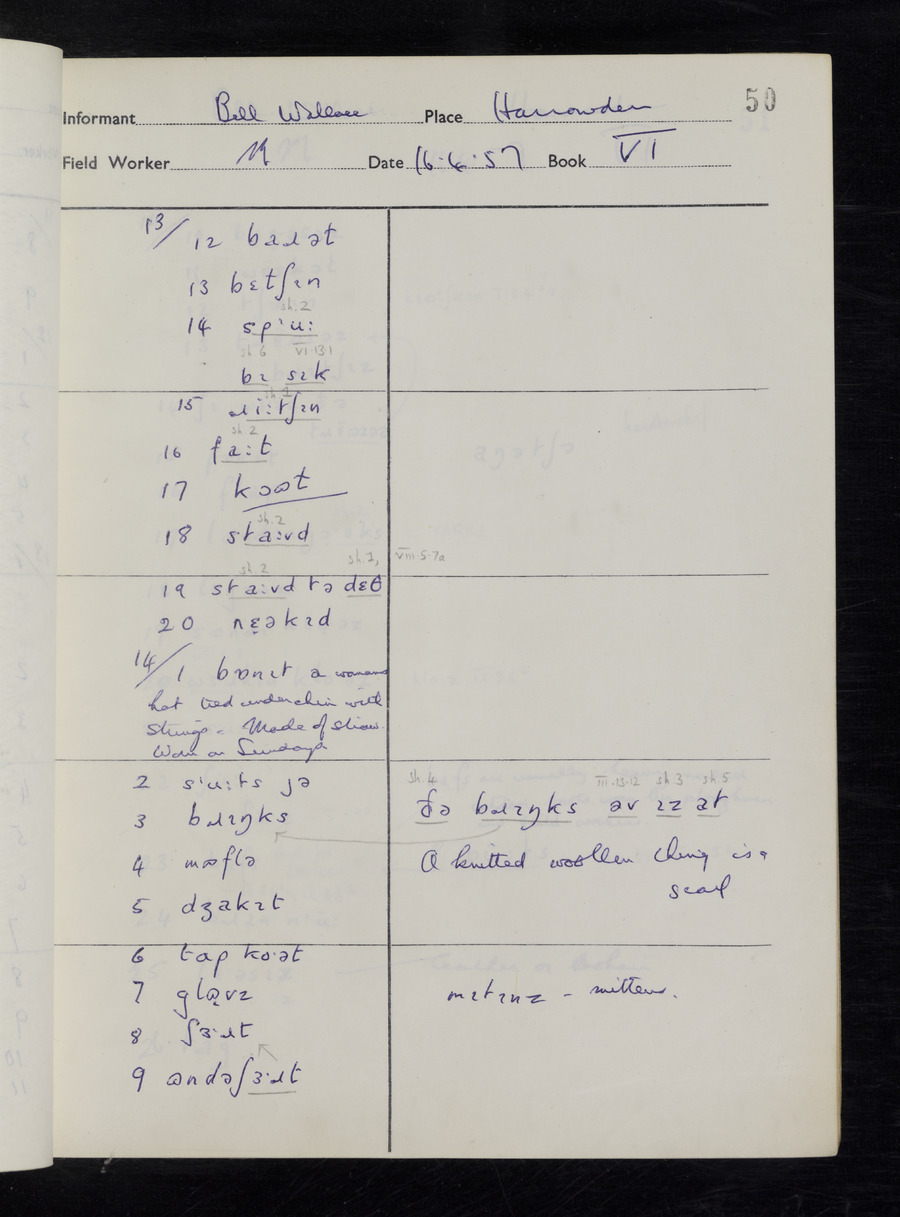 50
Informant Bill Wallace Place Harrowden
Field Worker Date 16.6.57 Book VI
13/ 12 bɹət
13 bɛtʃɪn
sh.2
14 spˈuː
sh 6 VI.13.1
bɪ sɪk
sh.1
15 ɹiːtʃɪn
sh.2
16 faːt
17 kɔət
sh.2
18 staːvd
sh.1, VIII.5.7a
sh.2
19 staːvd tə dɛθ
20 nɛəkɪd
14/ 1 bɒnɪt a womans
hat tied under chin with
strings. Made of straw.
Worn on Sundays
2 sˈuːts jə
sh.4 III.13.12 sh 3 sh.5
ðə bɹɪŋks əv ɪz at
3 bɹɪŋks
4 mʊflə
A knitted woollen thing is a
scarf
5 dʒakɪt
6 tɒp koˑət
7 glʌvz
mɪtɪnz - mittens.
8 ʃɜˑɹt
9 ʊndəʃɜˑɹt